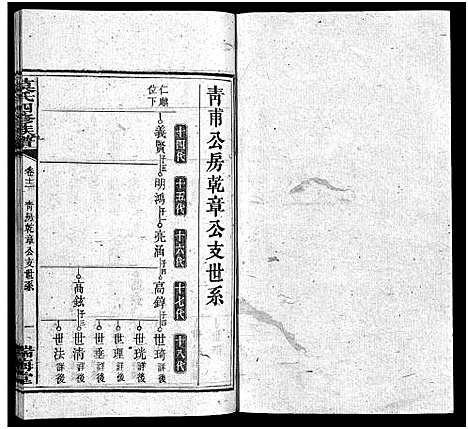 青甫公房乾章公支世系
十四代 十五代 十六代 十七代 十八代
仁
位下
義賢
明鴻
亮涵
高錞
世琦 詳後
世珖 詳後
世理 詳後
世垂 詳後
高鉉
世清 詳後
世法 詳後
氏四修族譜
卷十二
青房乾章公支世系
一
堂